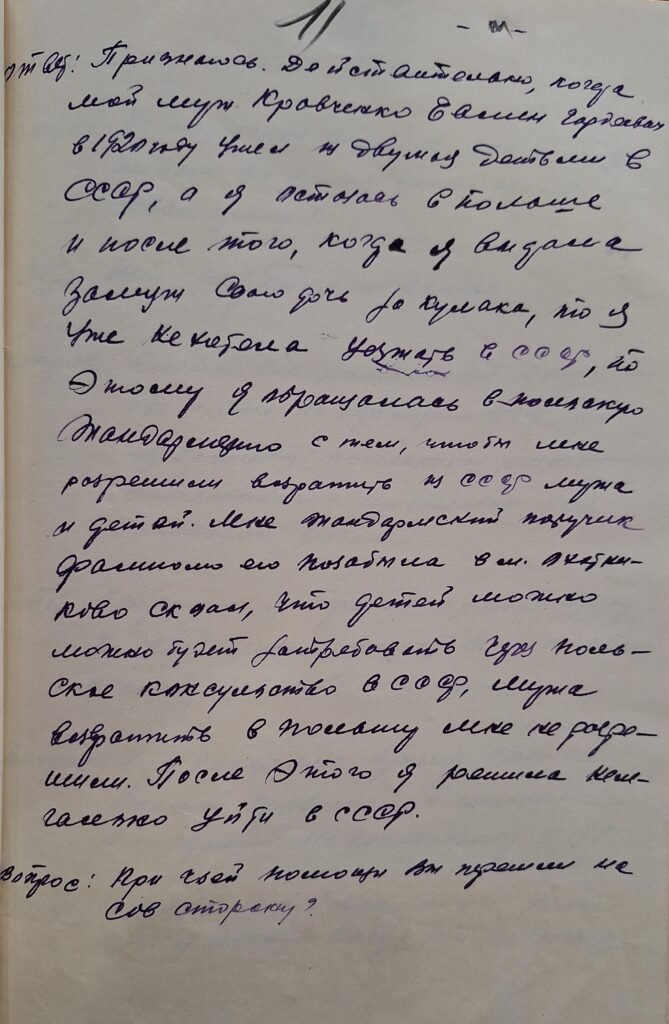 11
ответ: Признаюсь. Действительно, когда
мой муж Кравченко Евмен Гордеевич
в 1920 году ушел с двумя детьми в
СССР, а я осталась в Польше
и после того, когда я выдала
замуж свою дочь за кулака, то я
уже не хотела уезжать в СССР, по
этому я обращалась в польскую
жандармерию с тем, чтобы мне
разрешили возратить из СССР мужа
и детей. Мне жандармский поручик
фамилию его позабыла в м.
сказал, что детей можно
можно будет затребовать через поль-
ское консульство в СССР, мужа
возвратить в Польшу мне не разре-
шили. После этого я решила неле-
гально уйти в СССР.
Вопрос: При чьей помощи Вы перешли на
сов сторону?